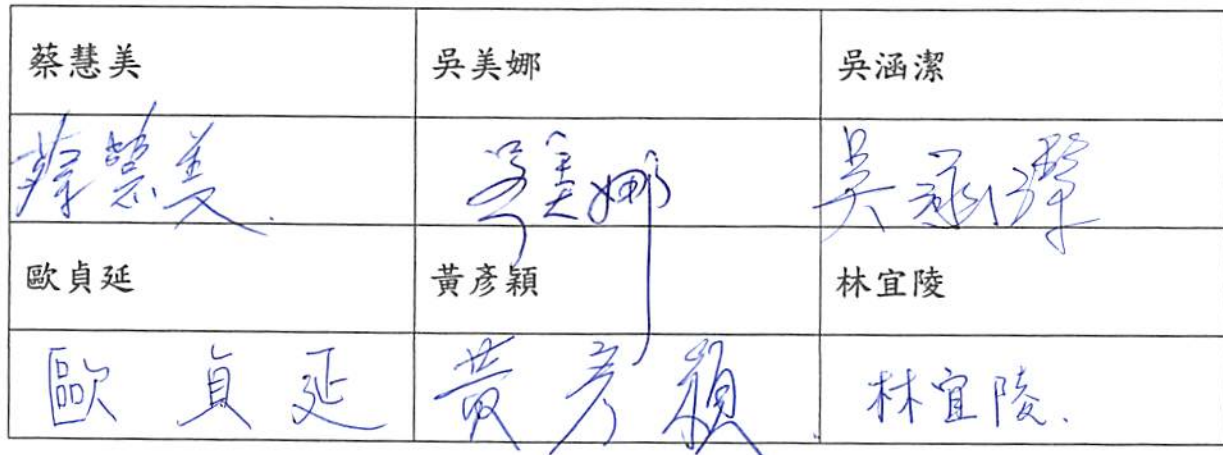 蔡慧美 吳美娜 吳涵潔
蔡慧美. 吳美娜 吳涵潔
歐貞延 黃彥穎 林宜陵
歐貞延 黃彥穎. 林宜陵.